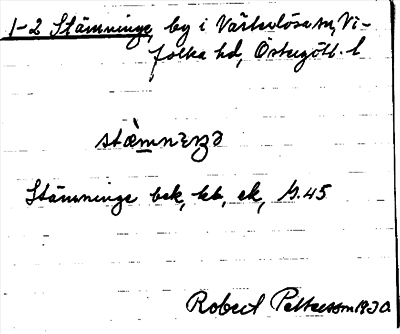 1-2 Stämninge, by i Värkerlösa sn, Vi-
folka hd, Östergötl. l
stæ̀mnɛŋə
Stämninge bek, kb, ek, G.45
Robert Pettersson 1930.